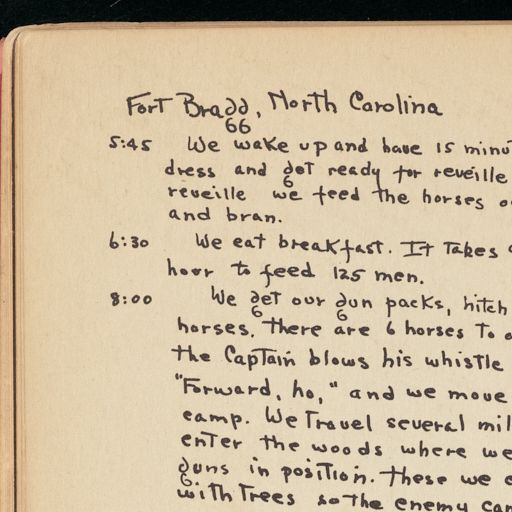 Fort Bragg, North Carolina
5:45 We wake up and have 15 minu
dress and get ready for reveille
reveille we feed the horses o
and bran.
6:30 We eat breakfast. It takes
hour to feed 125 men.
8:00 We get our gun packs, hitch
horses. There are 6 horses to
the Captain blows his whistle
"Forward, ho," and we move
camp. We travel several mil
enter the woods where we
guns in position. These we c
with trees so the enemy can